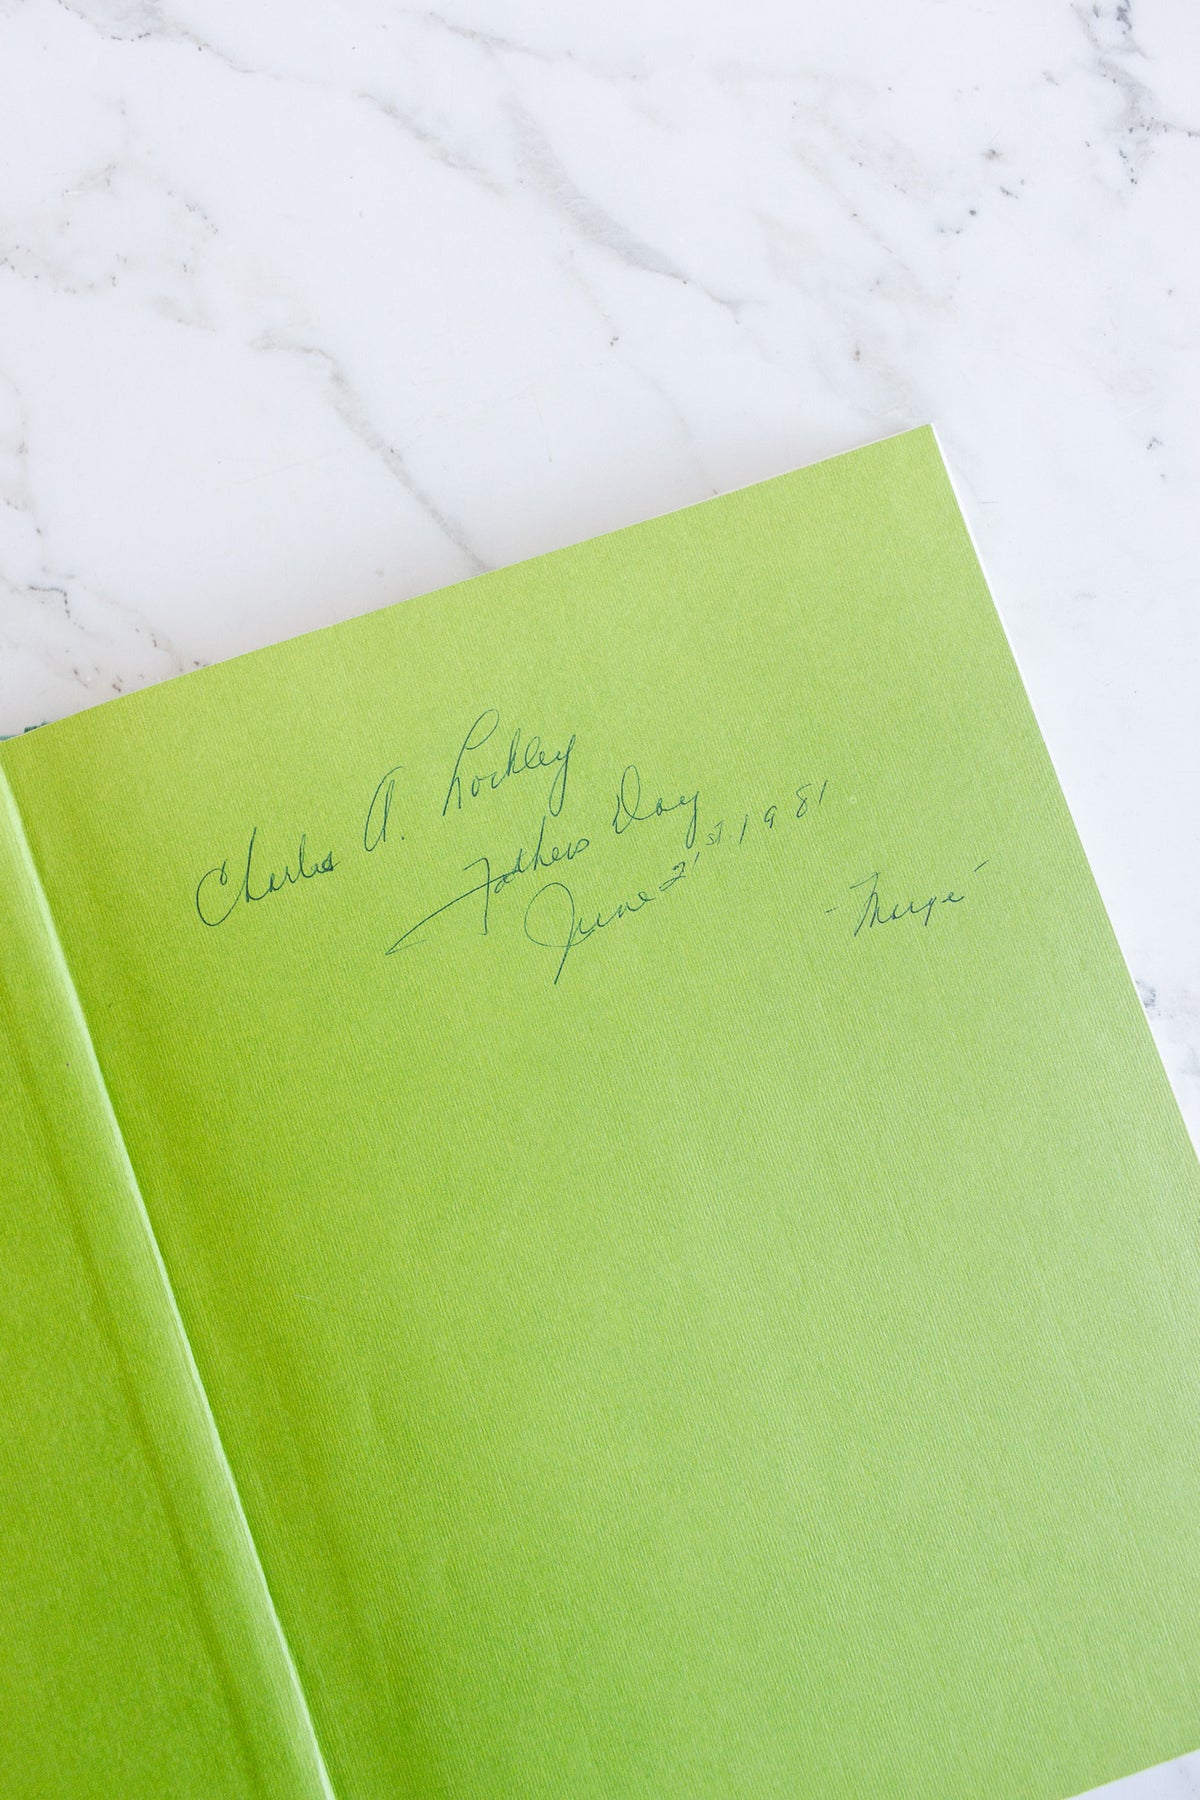 Charles A. Lockley
Fathers Day
June 21st. 1981
- Marge -